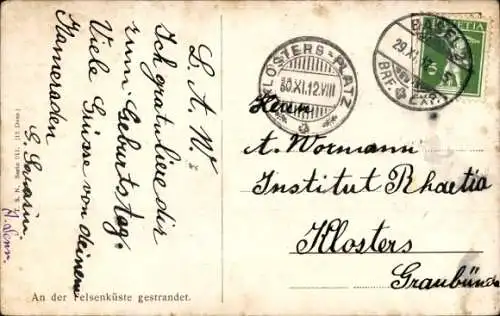 L. A. W.!
Ich gratuliere dir
zum Geburtstag.
Viele Grüsse von deinem
Kameraden
An der Felsenküste gestrandet.
KLOSTERS-PLATZ
30.XI.12.VIII
BASEL
29.XI.12
BRF. EXP.
HELVETIA
5
Herrn
A. Wormann
Institut Rhaetia
Klosters
Graubünden